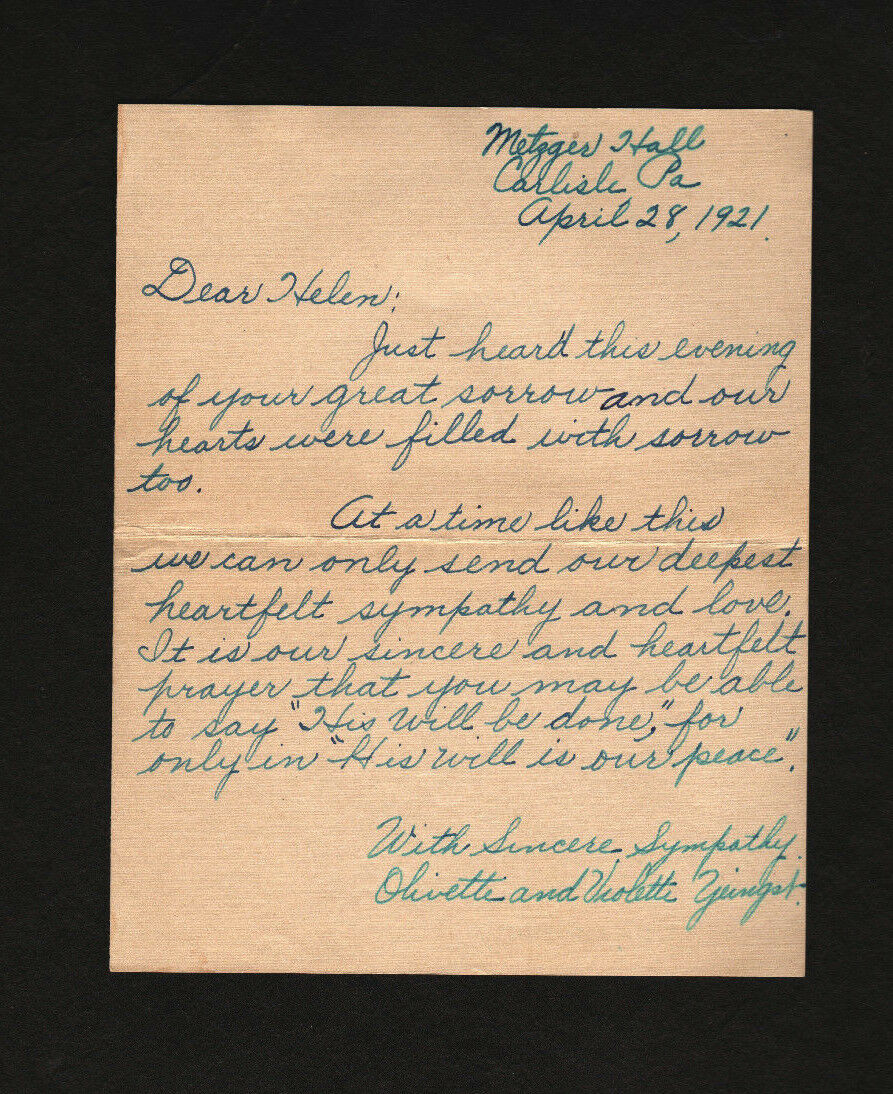 Metzger Hall
Carlisle Pa
April 28, 1921.
Dear Helen:
Just heard this evening
of your great sorrow and our
hearts were filled with sorrow
too.
At a time like this
we can only send our deepest
heartfelt sympathy and love.
It is our sincere and heartfelt
prayer that you may be able
to say "His will be done," for
only in "His will is our peace".
With Sincere Sympathy.
Olivette and Violette Yeingst.